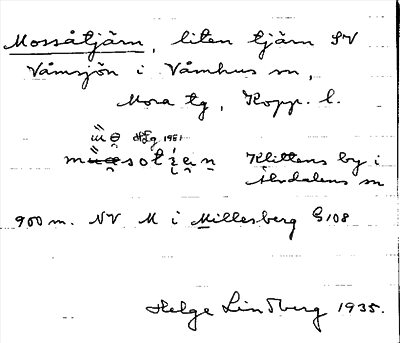 Mossåtjärn, liten tjärn SV
Våmsjön i Våmhus sn,
Mora tg, Kopp. l.
1951
Klittens by i
Älvdalens sn
900 m. NV M i Millesberg G 108
Helge Lindberg 1935.